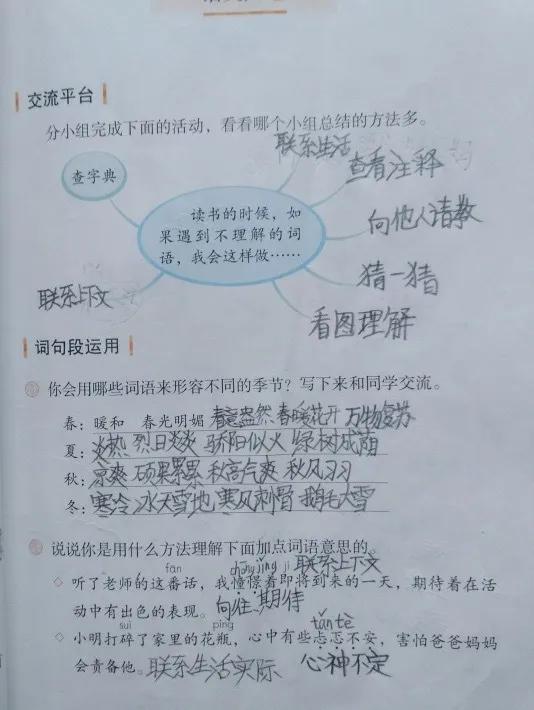 交流平台
分小组完成下面的活动，看看哪个小组总结的方法多。
联系生活
查字典
查看注释
读书的时候，如
果遇到不理解的词
语，我会这样做……
向他人请教
猜一猜
联系上下文
看图理解
词句段运用
你会用哪些词语来形容不同的季节？写下来和同学交流。
春：暖和 春光明媚 春意盎然 春暖花开 万物复苏
夏：炎热 烈日炎炎 骄阳似火 绿树成荫
秋：凉爽 硕果累累 秋高气爽 秋风习习
冬：寒冷 冰天雪地 寒风刺骨 鹅毛大雪
说说你是用什么方法理解下面加点词语意思的。
fan chōng jǐng jí 联系上下文
◇ 听了老师的这番话，我憧憬着即将到来的一天，期待着在活
动中有出色的表现。向往 期待
suì píng tǎn tè
◇ 小明打碎了家里的花瓶，心中有些忐忑不安，害怕爸爸妈妈
会责备他。联系生活实际 心神不定